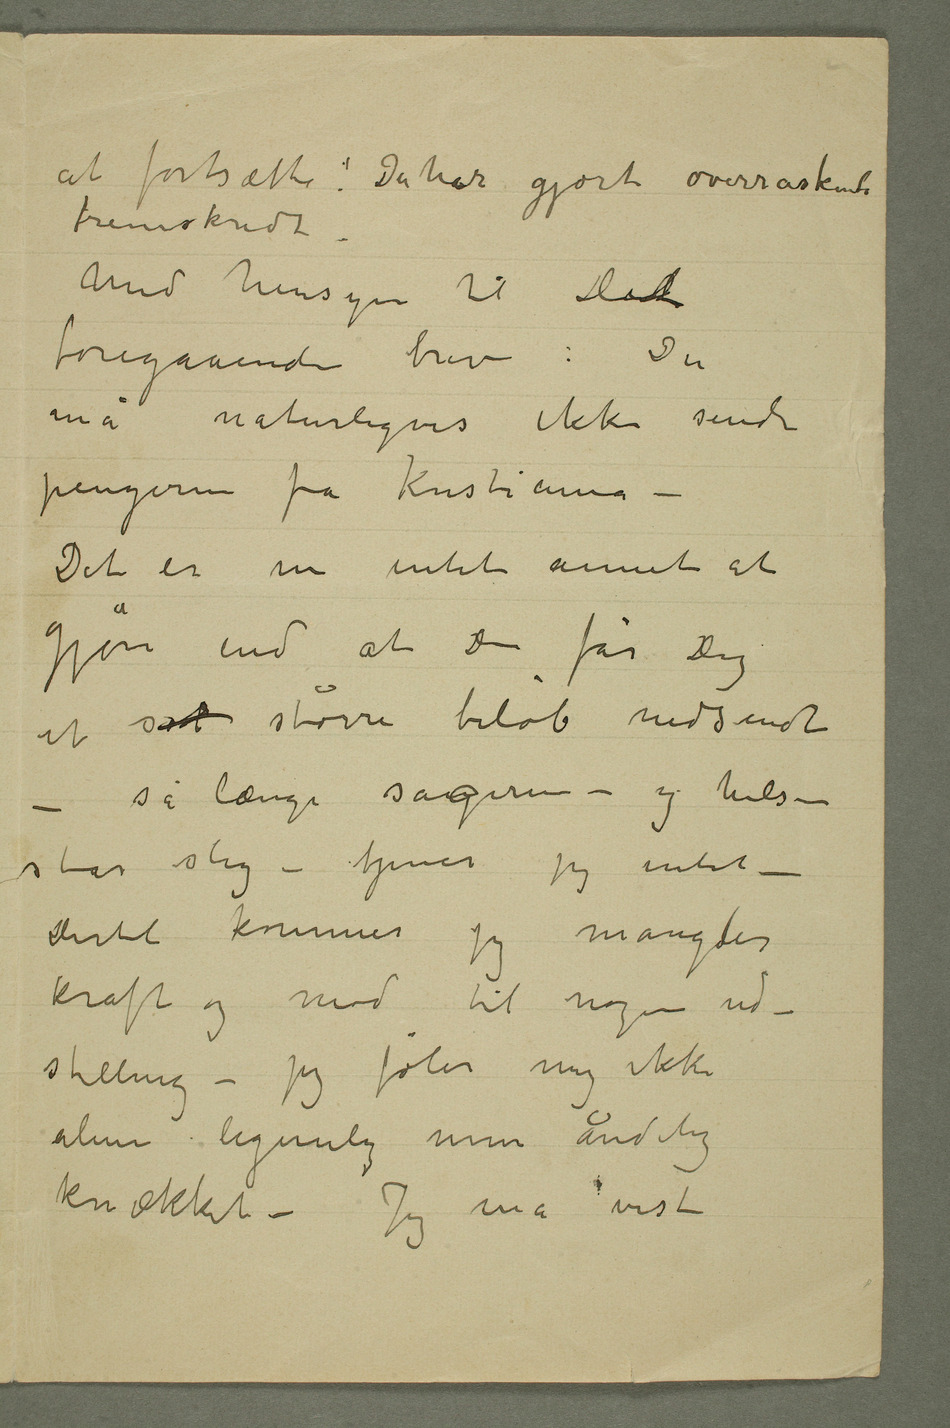 at fortsætte! Du har gjort overraskende
fremskridt.
Med hensyn til Det
foregaaende brev: Du
må naturligvis ikke sende
pengerne fra Kristiania –
Det er nu intet annet at
gjøre end at Du får Dig
et stort større beløb nedsendt
– så længe sagerne – og helsen
står slig – tjener jeg intet –
Dertil kommer jeg mangler
kraft og mod til nogen ud-
stilling – jeg føler mig ikke
alene legemlig men åndelig
knækket – Jeg må vist